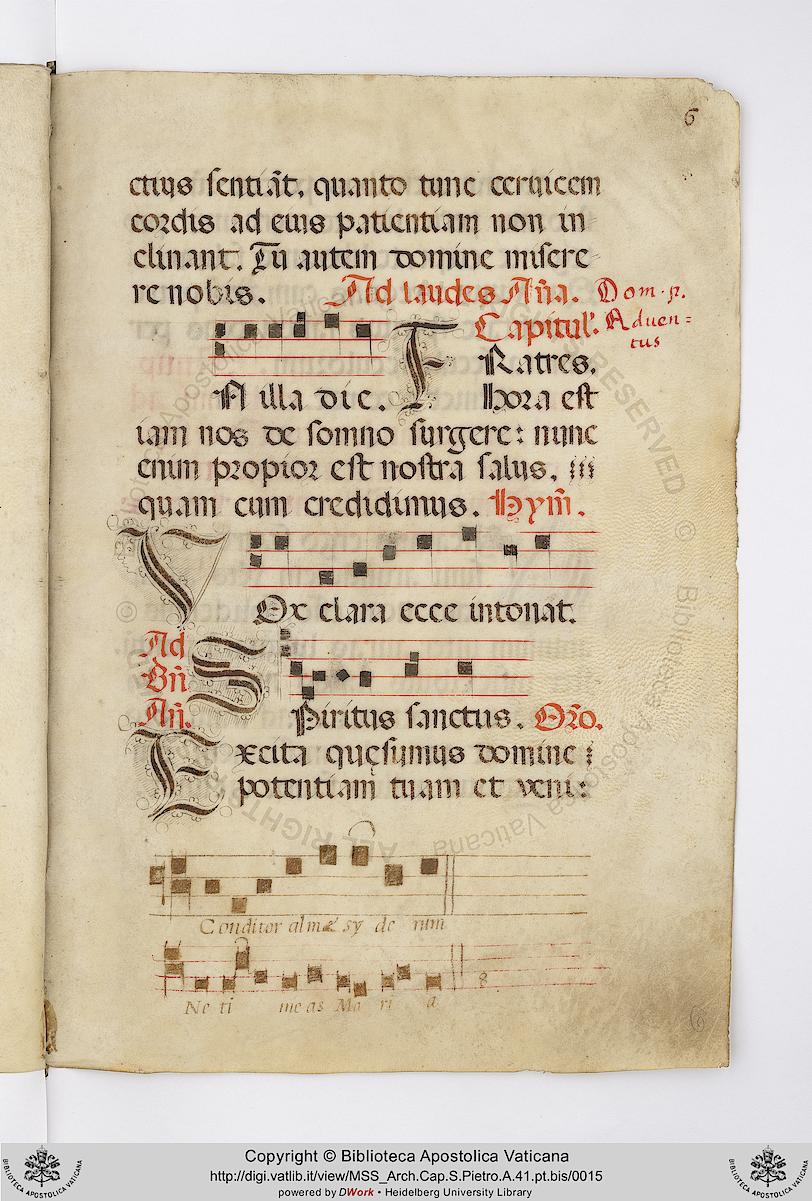 6
ctius sentiāt, quanto tunc ceruicem
cordis ad eius patientiam non in
clinant. Tu autem domine misere
re nobis. Ad laudes Añа.
Dom. p.
Aduen=
tus
Capitul'.
FRatres.
IN illa die. hora est
iam nos de somno surgere: nunc
enim propior est nostra salus,
quam cum credidimus. Hym̃.
VOx clara ecce intonat.
Ad
Bñ
Añ.
SPiritus sanctus. Orõ.
Excita quęsumus domine:
potentiam tuam et veni:
Conditor alme sy de rum
Ne ti me as Ma ri a
8
6
BIBLIOTECA APOSTOLICA VATICANA
Copyright © Biblioteca Apostolica Vaticana
http://digi.vatlib.it/view/MSS_Arch.Cap.S.Pietro.A.41.pt.bis/0015
powered by DWork • Heidelberg University Library
BIBLIOTECA APOSTOLICA VATICANA